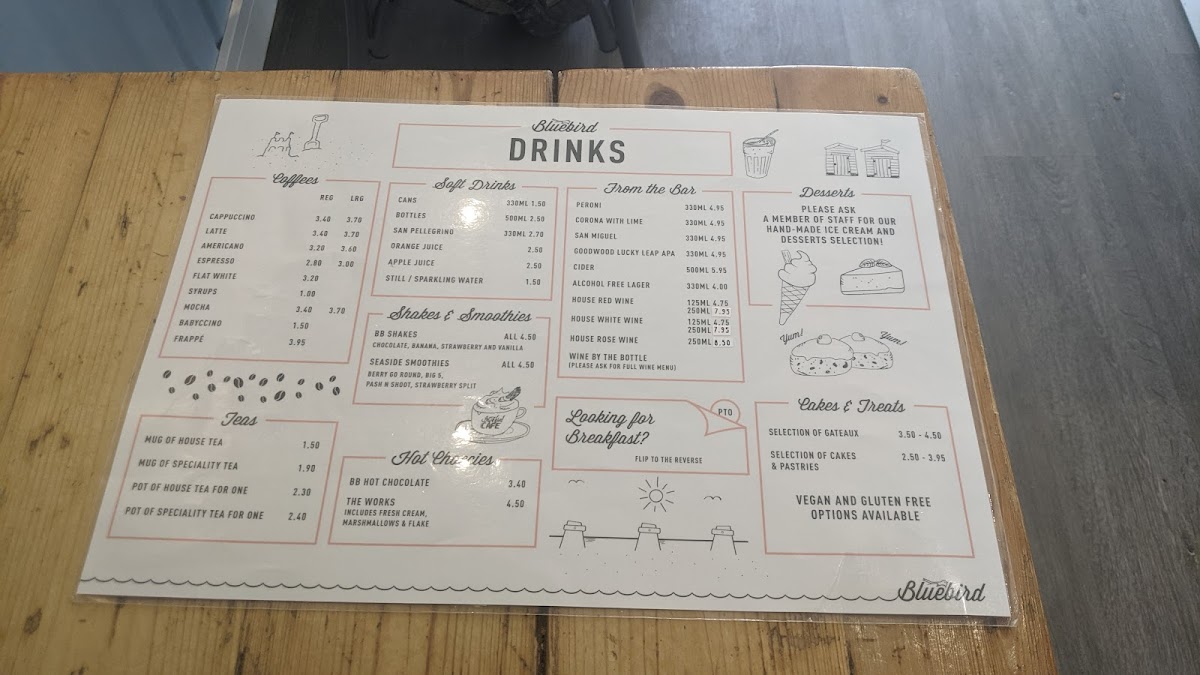 Bluebird
DRINKS
Coffees
REG LRG
CAPPUCCINO 3.40 3.70
LATTE 3.40 3.70
AMERICANO 3.20 3.60
ESPRESSO 2.80 3.00
FLAT WHITE 3.20
SYRUPS 1.00
MOCHA 3.40 3.70
BABYCCINO 1.50
FRAPPÉ 3.95
Teas
MUG OF HOUSE TEA 1.50
MUG OF SPECIALITY TEA 1.90
POT OF HOUSE TEA FOR ONE 2.30
POT OF SPECIALITY TEA FOR ONE 2.40
Soft Drinks
CANS 330ML 1.50
BOTTLES 500ML 2.50
SAN PELLEGRINO 330ML 2.70
ORANGE JUICE 2.50
APPLE JUICE 2.50
STILL / SPARKLING WATER 1.50
Shakes & Smoothies
BB SHAKES ALL 4.50
CHOCOLATE, BANANA, STRAWBERRY AND VANILLA
SEASIDE SMOOTHIES ALL 4.50
BERRY GO ROUND, BIG 5,
PASH N SHOOT, STRAWBERRY SPLIT
CAFE
Hot Choccies
BB HOT CHOCOLATE 3.40
THE WORKS 4.50
INCLUDES FRESH CREAM,
MARSHMALLOWS & FLAKE
From the Bar
PERONI 330ML 4.95
CORONA WITH LIME 330ML 4.95
SAN MIGUEL 330ML 4.95
GOODWOOD LUCKY LEAP APA 330ML 4.95
CIDER 500ML 5.95
ALCOHOL FREE LAGER 330ML 4.00
HOUSE RED WINE 125ML 4.75
250ML 7.95
HOUSE WHITE WINE 125ML 4.75
250ML 7.95
HOUSE ROSE WINE 250ML 8.50
WINE BY THE BOTTLE
(PLEASE ASK FOR FULL WINE MENU)
Looking for
Breakfast?
PTO
FLIP TO THE REVERSE
Desserts
PLEASE ASK
A MEMBER OF STAFF FOR OUR
HAND-MADE ICE CREAM AND
DESSERTS SELECTION!
Yum! Yum!
Cakes & Treats
SELECTION OF GATEAUX 3.50 - 4.50
SELECTION OF CAKES 2.50 - 3.95
& PASTRIES
VEGAN AND GLUTEN FREE
OPTIONS AVAILABLE
Bluebird